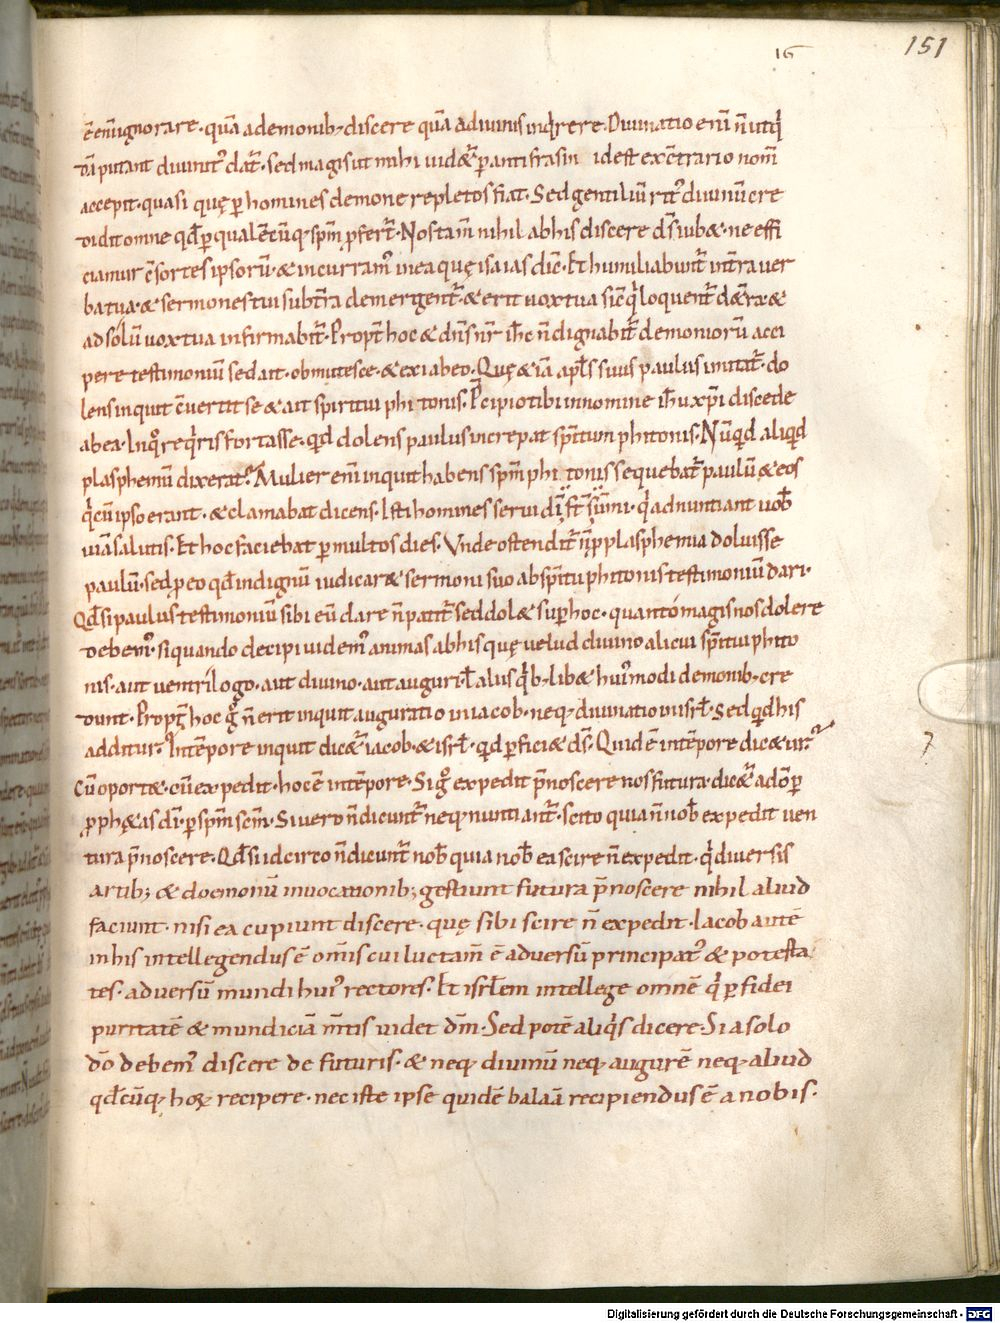 16
151
ē em̄ ignorare. quā ademonib; discere quā adiuinis inq̄rere. Diuinatio eni n̄ utq̄
dā putant diuinit᷒ dat᷑. sed magis ut mihi uidet᷑ p antifrasin idest excōtrario nom̄
accepit. quasi quę p homines demone repletos fiat. Sed gentiliū rit᷒ diuinū cre
didit omne qđ p qualēcūq; sp̄m p̄fert᷑. Nos tam̄ nihil abhis discere d̄s iubet. ne effi
ciamur c̄sortes ipsorū. & incurram᷒ in ea quę isaias dic̄. Et humiliabunt᷑ int̄ra uer
ba tua. & sermones tui subt̄ra demergent᷑. & erit uox tua sic̄ q̄ loquent᷑ de t̄ra. &
ad solū uox tua infirmabit᷑. Propt̄ hoc & dn̄s nr̄ ih̄c n̄ dignabit᷑ demoniorū acci
pere testimoniū sed ait. obmutesce. & exi ab eo. Quę & iā apl̄s suus paulus imitat᷑. do
lens inquit c̄uertit se & ait spiritui phitonis. P̄cipio tibi in nomine ih̄u xp̄i discede
ab ea. Inq̄re req̄ris fortasse. qđ dolens paulus increpat sp̄itum phitonis. Nūqđ aliqđ
plasphemū dixerat? Mulier em̄ inquit habens sp̄m phi tonis sequebat᷑ paulū & eos
q̄ cū ipso erant. & clamabat dicens. Isti homines serui dī s̄t sūmi. q̄ adnuntiant uob̄
uiā salutis. Et hoc faciebat p multos dies. Vnde ostendit᷑ n̄ p plasphemia doluisse
paulū. sed p eo qđ indignū iudicaret sermoni suo ab sp̄itu phitonis testimoniū dari.
Qđ si paulus testimoniū sibi eū dare n̄ patit᷑ sed dolet sup hoc. quanto magis nos dolere
debem᷒. si quando decipi uidem᷒ animas abhis quę uelud diuino alicui sp̄itui phito
nis. aut uentrilogo. aut diuino. aut auguri. ł alus q̄b; libet hui᷒modi demonib; cre
dunt. Propt̄ hoc g̊ n̄ erit inquit auguratio in iacob. neq; diuinatio in isrł. Sed qđ his
additur? In tēpore inquit dicet᷑ iacob & isrł. qđ pficiet d̄s. Quid ē in tēpore dicet ur̄?
Cū oportet. cū expedit. hoc ē in tēpore. Si g̊ expedit p̄noscere nos futura. dicet᷑ a dō p
p̄phetas dī. p sp̄m sc̄m. Si uero n̄ dicunt᷑ neq; nuntiant᷑. scito quia n̄ nob̄ expedit uen
tura p̄noscere. Qđ si idcirco n̄ dicunt᷑ nob̄ quia nob̄ ea scire n̄ expedit. q̄ diuersis
artib; & doemonū inuocationib; gestiunt futura p̄noscere nihil aliud
faciunt. nisi ea cupiunt discere. quę sibi scire n̄ expedit. Iacob autē
in his intellegendus ē omīs cui luctam̄ ē aduersū principat᷒ & potesta
tes. aduersū mundi hui᷒ rectores. Et isrł̄em intellege omnē q̄ p fidei
puritatē & mundiciā m̄tis uidet dm̄. Sed potē aliq̄s dicere. Si a solo
dō debem᷒ discere de futuris. & neq; diuinū neq; augurē neq; aliud
qđcūq; hoꝝ recipere. nec iste ipse quidē balaā recipiendus ē a nobis.
Digitalisierung gefördert durch die Deutsche Forschungsgemeinschaft - DFG